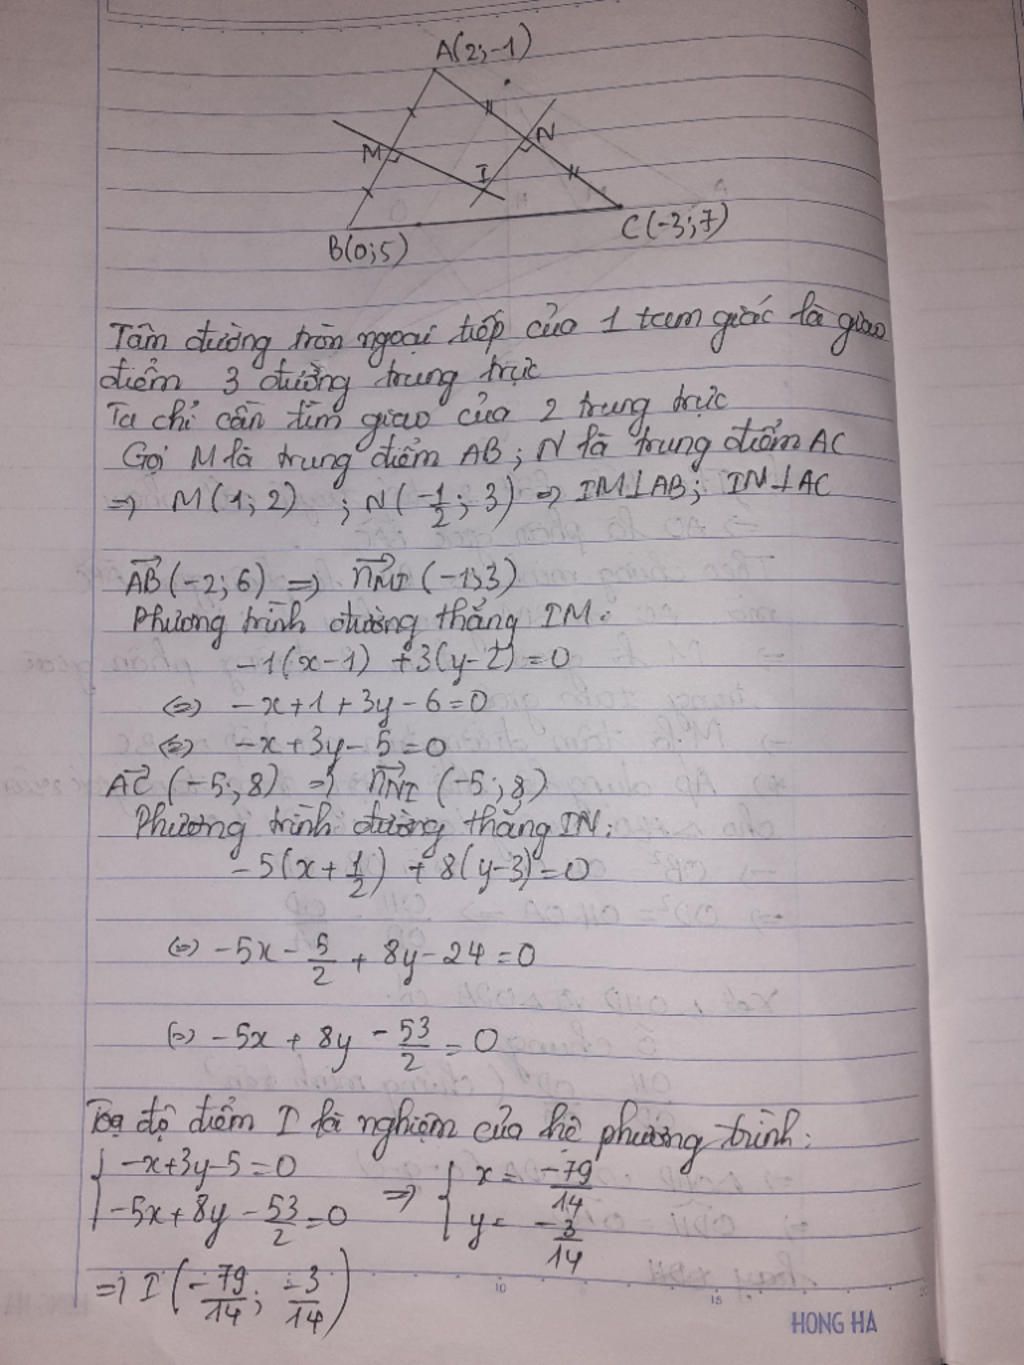 A(2;-1)
M
N
I
B(0;5)
C(-3;7)
Tâm đường tròn ngoại tiếp của 1 tam giác là giao
điểm 3 đường trung trực
Ta chỉ cần tìm giao của 2 trung trực
Gọi M là trung điểm AB; N là trung điểm AC
=> M(1;2) ; N(-1/2; 3) => IM⊥AB; IN⊥AC
AB→(-2;6) => n→MI (-1;3)
Phương trình đường thẳng IM:
-1(x-1) +3(y-2)=0
<=> -x+1+3y-6=0
<=> -x+3y-5=0
AC→(-5;8) => n→NI (-5;8)
Phương trình đường thẳng IN:
-5(x+1/2) +8(y-3)=0
<=> -5x-5/2+8y-24=0
<=> -5x+8y-53/2=0
Toạ độ điểm I là nghiệm của hệ phương trình:
{ -x+3y-5=0 => { x=-79/14
-5x+8y-53/2=0 y=-3/14
=> I(-79/14; -3/14)
10
15
HONG HA